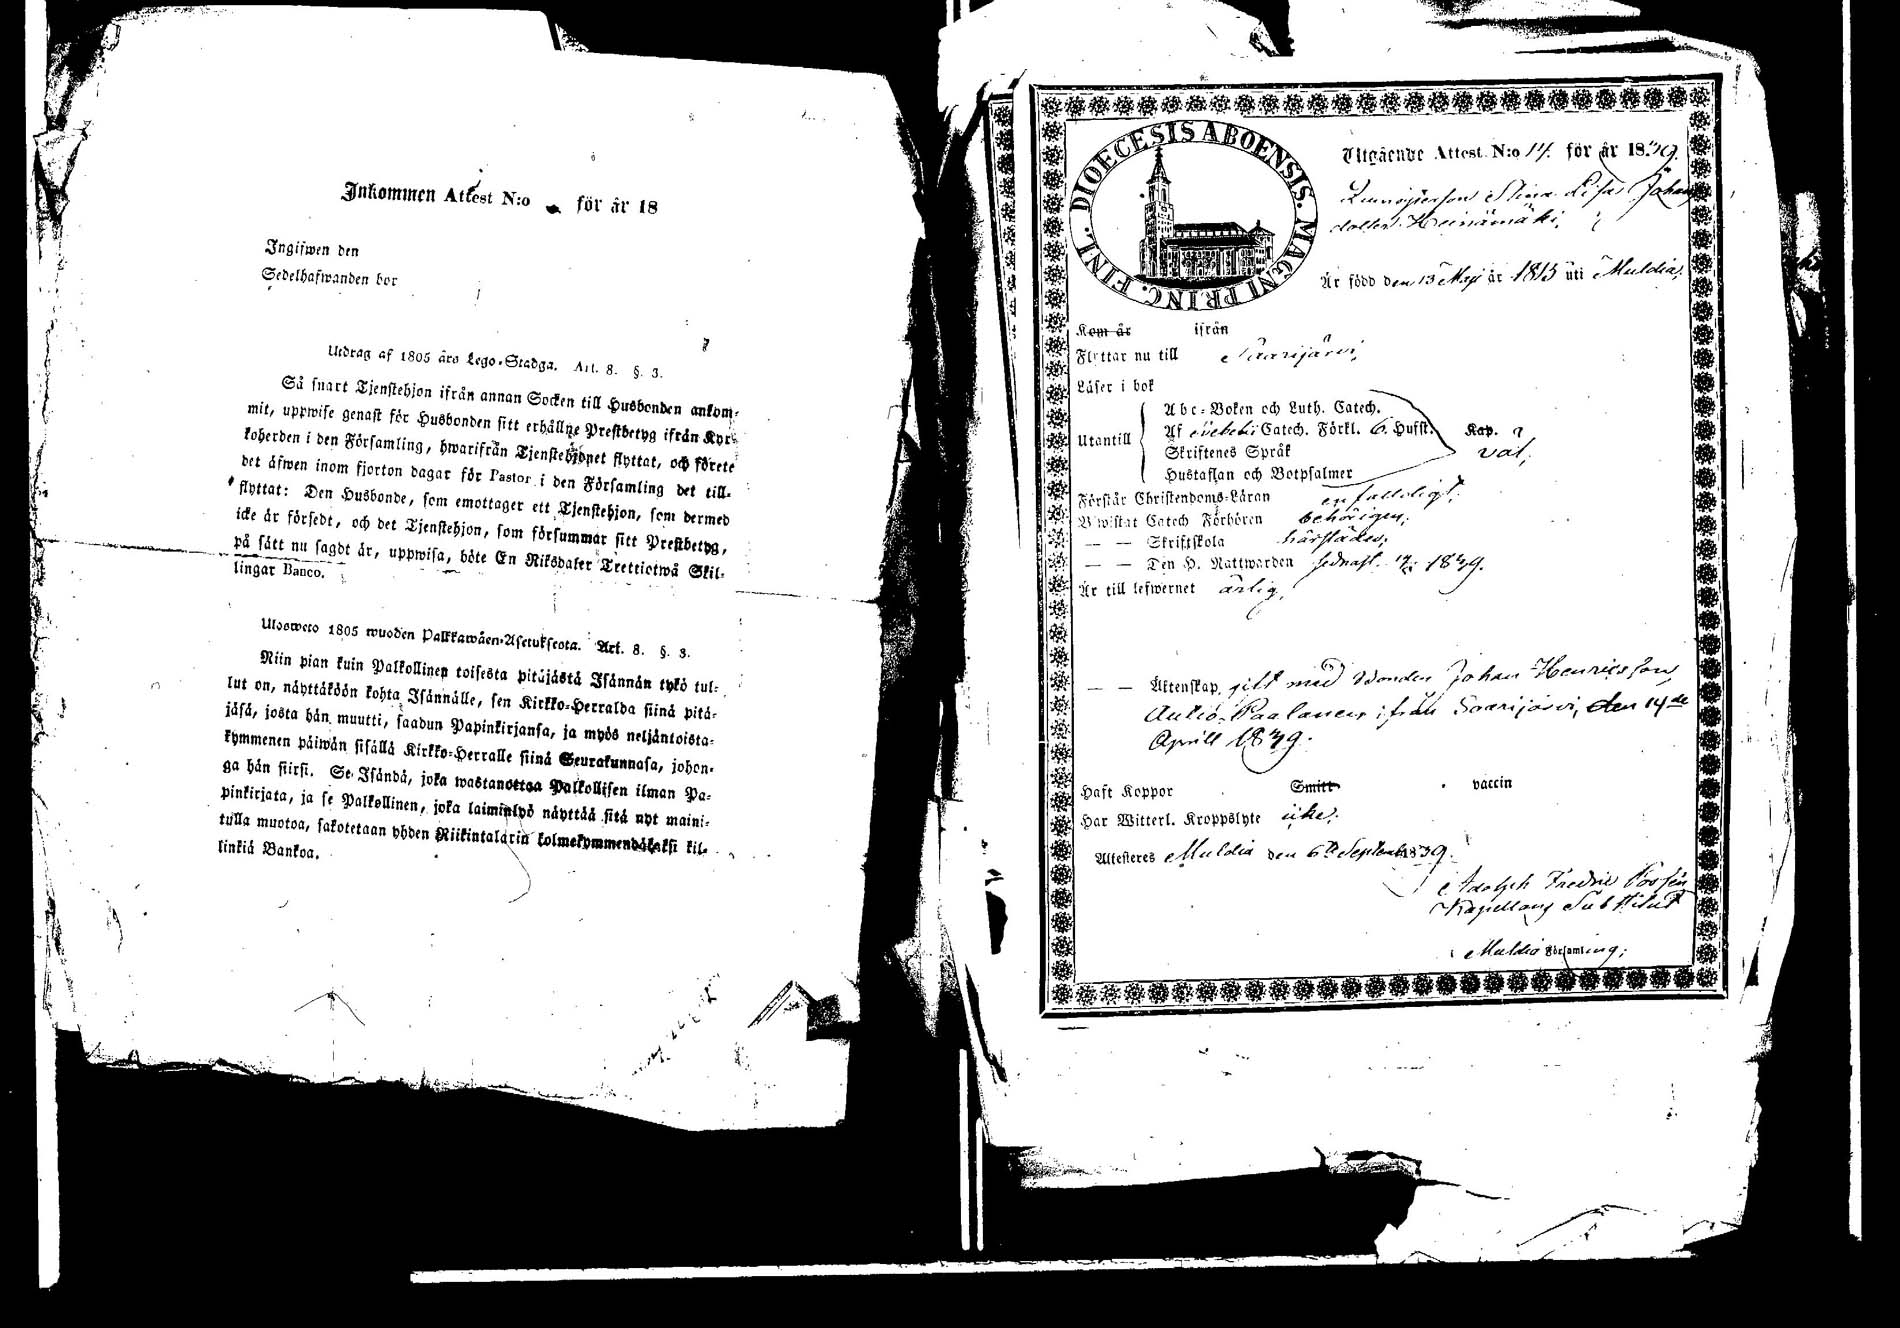 Inkommen Attest N:o för år 18
Ingifwen den
Sedelhafwanden bor
Utdrag af 1805 års Lego-Stadga. Art. 8. §. 3.
Så snart Tjenstehjon ifrån annan Socken till Husbonden ankom-
mit, uppwise genast för Husbonden sitt erhållne Prestbetyg ifrån Kyr-
koherden i den Församling, hwarifrån Tjenstehjonet flyttat, och förete
det äfwen inom fjorton dagar för Pastor i den Församling det till-
flyttat: Den Husbonde, som emottager ett Tjenstehjon, som dermed
icke är försedt, och det Tjenstehjon, som försummar sitt Prestbetyg,
på sätt nu sagdt är, uppwisa, böte En Riksdaler Trettiotwå Skil-
lingar Banco.
Ulosweto 1805 wuoden Palkkawäen-Asetuksesta. Art. 8. §. 3.
Niin pian kuin Palkollinen toisesta pitäjästä Isännän tykö tul-
lut on, näyttäköön kohta Isännälle, sen Kirkko-Herralda siinä pitä-
jäsä, josta hän muutti, saadun Papinkirjansa, ja myös neljäntoista-
kymmenen päiwän sisällä Kirkko-Herralle siinä Seurakunnasa, johon-
ga hän siirsi. Se Isändä, joka wastanottaa Palkollisen ilman Pa-
pinkirjata, ja se Palkollinen, joka laiminlyö näyttää sitä nyt maini-
tulla muotoa, sakotetaan yhden Riikintalarin kolmekymmendäkaksi kil-
linkiä Bankoa.
DIOECESIS ABOENSIS. MAGNI PRINC. FINL.
Utgående Attest. N:o 14. för år 1839.
Stina Lisa Johans
dotter Heinämäki,
Är född den 13 Maji år 1815 uti Muldia,
Kom år ifrån
Flyttar nu till Saarijärvi,
Läser i bok
Abc-Boken och Luth. Catech.
Utantill Af Svebelii Catech. Förkl. 6. Hufst. Kap.
Skriftenes Språk väl,
Hustaflan och Botpsalmer
Förstår Christendoms-Läran enfaldigt,
Biwistat Catech Förhören behörigen,
— — Skriftskola härstädes,
— — Den H. Nattwarden sednast 1839.
Är till lefwernet ärlig,
— — Äktenskap, gift med Bonden Johan Henricsson
Paalanen ifrån Saarijärvi, den 14de
Aprill 1839.
Haft Koppor Smitt vaccin
Har Witterl. Kroppslyte icke,
Attesteres Muldia den 6te September 1839.
Adolph Fredric
Kapellans Substitut
Muldia Församling,